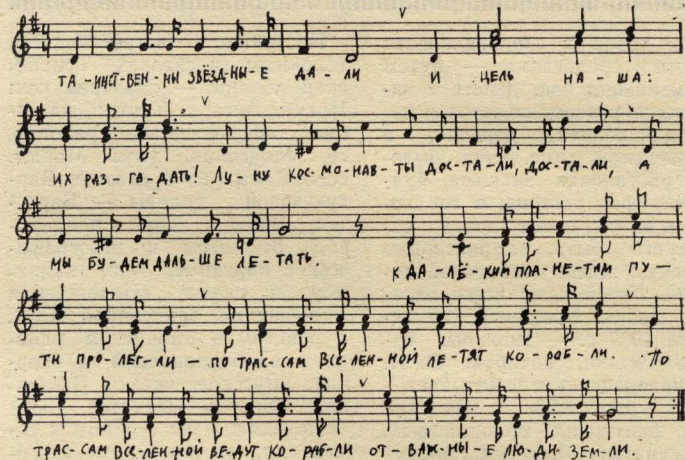 ТА-ИНСТ-ВЕН-НЫ ЗВЁЗД-НЫ-Е ДА-ЛИ И ЦЕЛЬ НА-ША:
ИХ РАЗ-ГА-ДАТЬ! ЛУ-НУ КОС-МО-НАВ-ТЫ ДОС-ТА-ЛИ, ДОС-ТА-ЛИ, А
МЫ БУ-ДЕМ ДАЛЬ-ШЕ ЛЕ-ТАТЬ. К ДА-ЛЁ-КИМ ПЛА-НЕ-ТАМ ПУ-
ТИ ПРО-ЛЕГ-ЛИ – ПО ТРАС-САМ ВСЕ-ЛЕН-НОЙ ЛЕ-ТЯТ КО-РАБ-ЛИ. ПО
ТРАС-САМ ВСЕ-ЛЕН-НОЙ ВЕ-ДУТ КО-РАБ-ЛИ ОТ-ВАЖ-НЫ-Е ЛЮ-ДИ ЗЕМ-ЛИ.